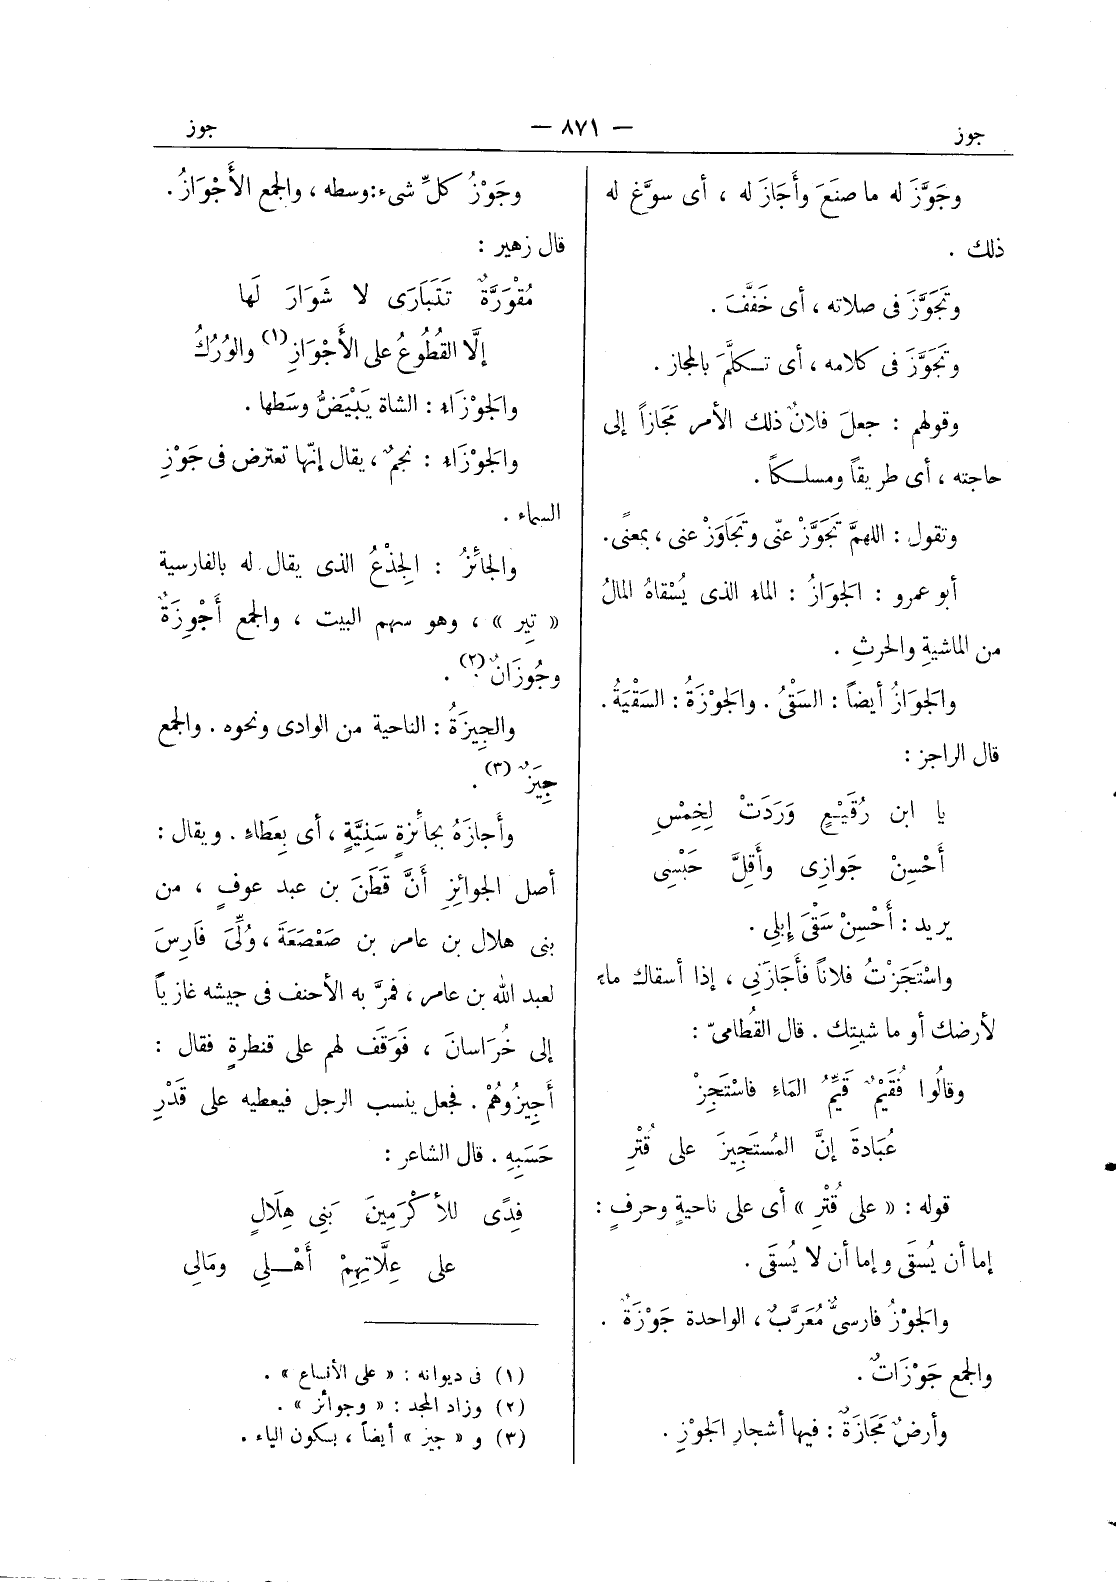 جوز
— ٨٧١ —
جوز
وجَوَّزَ له ما صنَعَ وأَجَازَ له ، أى سوَّغ له
ذلك .
وتَجَوَّزَ فى صلاته ، أى خَفَّفَ .
وتَجَوَّزَ فى كلامه ، أى تكلَّمَ بالمجاز .
وقولهم : جعلَ فلانٌ ذلك الأمر مَجَازاً إلى
حاجته ، أى طريقاً ومسلكاً .
وتقول : اللهمَّ تَجَوَّزْ عنّى وتَجَاوَزْ عنى ، بمعنًى.
أبو عمرو : الجوَازُ : الماء الذى يُسْقاهُ المالُ
من الماشيةِ والحرثِ .
والجَوازُ أيضاً : السَقْىُ . والجَوْزَةُ : السَقْيَةُ .
قال الراجز :
يا ابن رُقَيْعٍ وَرَدَتْ لِخِمْسِ
أَحْسِنْ جَوازِى وأَقِلَّ حَبْسِى
يريد : أَحْسِنْ سَقْىَ إبلِى .
واسْتَجَزْتُ فلاناً فأَجَازَنِى ، إذا أسقاك ماء
لأرضك أو ماشيتِك . قال القُطامىّ :
وقالُوا فُقَيْمٌ قَيِّمُ المَاءِ فاسْتَجِزْ
عُبَادةَ إنَّ المُسْتَجِيزَ على قُتْرِ
قوله : « على قُتْرِ » أى على ناحيةٍ وحرفٍ :
إما أن يُسقَى وإما أن لا يُسقَى .
والجَوْزُ فارسىٌّ مُعَرَّبٌ ، الواحدة جَوْزَةٌ .
والجمع جَوْزَاتٌ .
وأرضٌ مَجَازَةٌ : فيها أشجار الجَوْزِ .
وجَوْزُ كلِّ شىء: وسطه ، والجمع الأَجْوَازُ .
قال زهير :
مُقْوَرَّةٌ تَتَبَارَى لا شَوَارَ لَها
إلَّا القُطُوعُ على الأَجْوَازِ (١) والوُرُكُ
والجَوْزَاءِ : الشاة يَبْيَضُّ وسَطها .
والجَوْزَاءِ : نجمٌ ، يقال إنّها تعترض فى جَوْزِ
السماء .
والجائِزُ : الجِذْعُ الذى يقال له بالفارسية
« تِير » ، وهو سهم البيت ، والجمع أَجْوِزَةٌ
وجُوزَانٌ (٢) .
والجِيزَةُ : الناحية من الوادى ونحوه . والجمع
جِيَزٌ (٣) .
وأَجازَهُ بجائزةٍ سَنِيَّةٍ ، أى بِعَطاءِ . ويقال :
أصل الجوائِزِ أنَّ قَطَنَ بن عبد عوفٍ ، من
بنى هلال بن عامر بن صَعْصَعَةَ ، وُلِّىَ فَارِسَ
لعبد الله بن عامر ، فمرَّ به الأحنف فى جيشه غازياً
إلى خُرَاسانَ ، فَوَقَف لهم على قنطرةٍ فقال :
أَجِيزُوهُمْ . فجعل ينسب الرجل فيعطيه على قَدْرِ
حَسَبِهِ . قال الشاعر :
فِدًى للأَكْرَمِينَ بَنِى هِلَالٍ
على عِلَّاتِهِمْ أَهْلِى ومَالِى
(١) فى ديوانه : « على الأنساع » .
(٢) وزاد المجد : « وجوائز » .
(٣) و « جيز » أيضاً ، بسكون الياء .